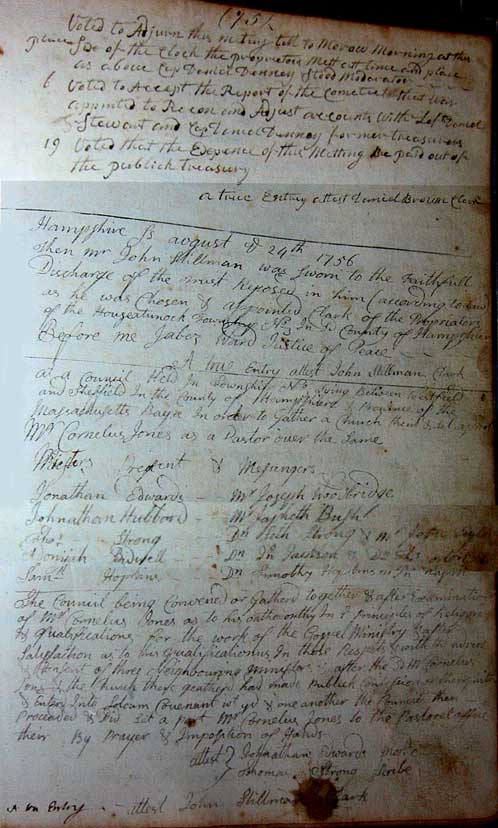 (1756)
Voted to Adjurn this meting till to Morow Morning at this
place Six of the Clock the proprietors Mett att time and place
as above Cap Daniel Denney Stood Moderator
6 Voted to Accept the Report of the Cometee that was
appointed to Recon and Adjust accounts with Left Daniel
Stewart and Cap Daniel Denney former treasurers
19 Voted that the Expence of this Metting be paid out of
the publick treasury
a true Entry attest Daniel Brown Clark
Hampshire ss august ye 24th 1756
then mr John Stillman was Sworn to the Faithfull
Discharge of the trust Reposed in him (according to Law
as he was Chosen & appointed Clark of the Propriators
of the Houseatunock Township No 3 In ye County of Hampshire
Before me Jabez Ward Justice of Peace
A true Entry attest John Stillman Clark
at a Council Held In Township No 3 Lying Between Westfield
and Sheffield In the County of Hampshire & Province of the
Massachusetts Baye In order to Gather a Church there &
Mr Cornelius Jones as a Pastor over the Same
Present & Mesingers
Jonathan Edwards - Mr Joseph Woodbridge
Johnathan Hubbard - Mr Japheth Bush
Thos Strong - Dn Seth Strong & Mr
Adonijah Bidwell - Dn
Samll Hopkins - Dn Timothy Hopkins
The Council being Convened or Gatherd together & after Examination
of Mr Cornelius Jones as to his orthodoxy In ye Principles of Religion
& Qualifications for the work of the Gospel Ministry & after
Satisfaction as to his Qualifications In those Respects with the advice
& Consent of three Neighbouring Ministers after the Sd Mr Cornelius
Jones & the Church there geatherd had made Publick Confession
& Enterd Into Solem Covenant wt god & one another the Council then
Proceeded & Did Set a part Mr Cornelius Jones to the Pastoral office
their By Prayer & Imposition of Hands
attest Johnathan Edwards Modr
Thomas Strong Scribe
A tru Entery - attest John Stillman Clark